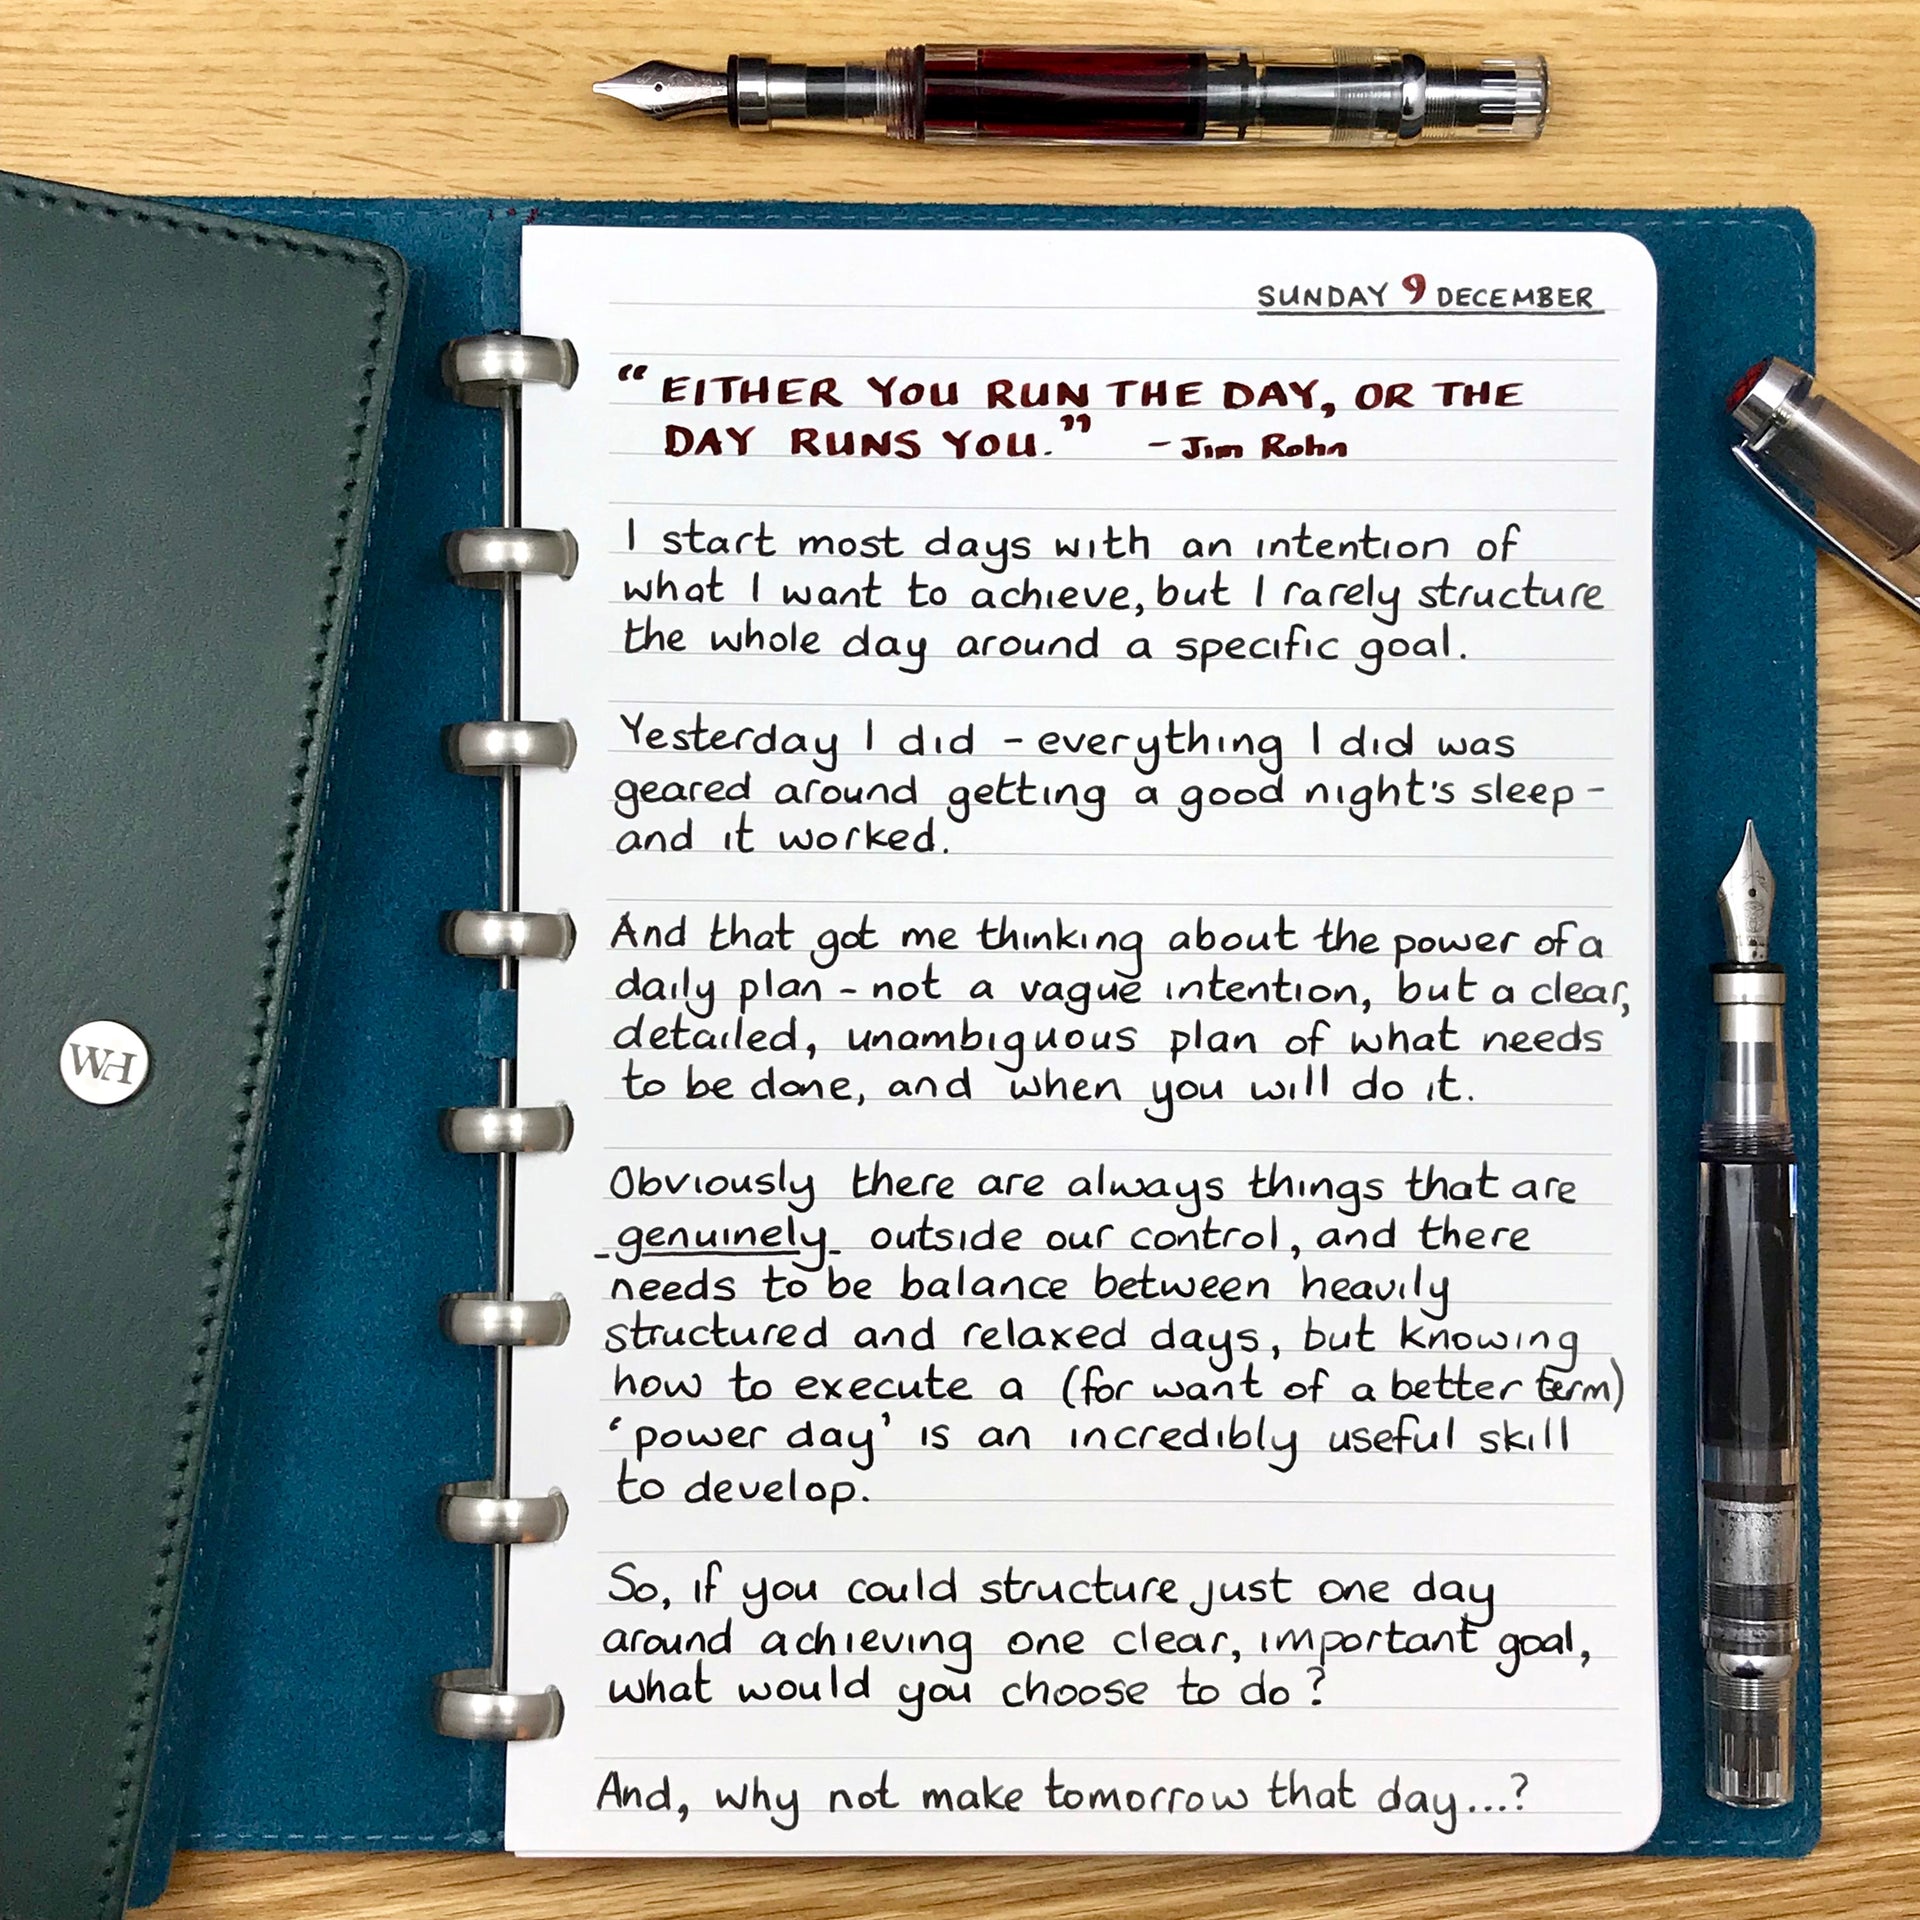 SUNDAY 9 DECEMBER
“EITHER YOU RUN THE DAY, OR THE
DAY RUNS YOU.” - Jim Rohn
I start most days with an intention of
what I want to achieve, but I rarely structure
the whole day around a specific goal.
Yesterday I did - everything I did was
geared around getting a good night's sleep -
and it worked.
And that got me thinking about the power of a
daily plan - not a vague intention, but a clear,
detailed, unambiguous plan of what needs
to be done, and when you will do it.
Obviously there are always things that are
genuinely outside our control, and there
needs to be balance between heavily
structured and relaxed days, but knowing
how to execute a (for want of a better term)
‘power day’ is an incredibly useful skill
to develop.
So, if you could structure just one day
around achieving one clear, important goal,
what would you choose to do?
And, why not make tomorrow that day...?
WH